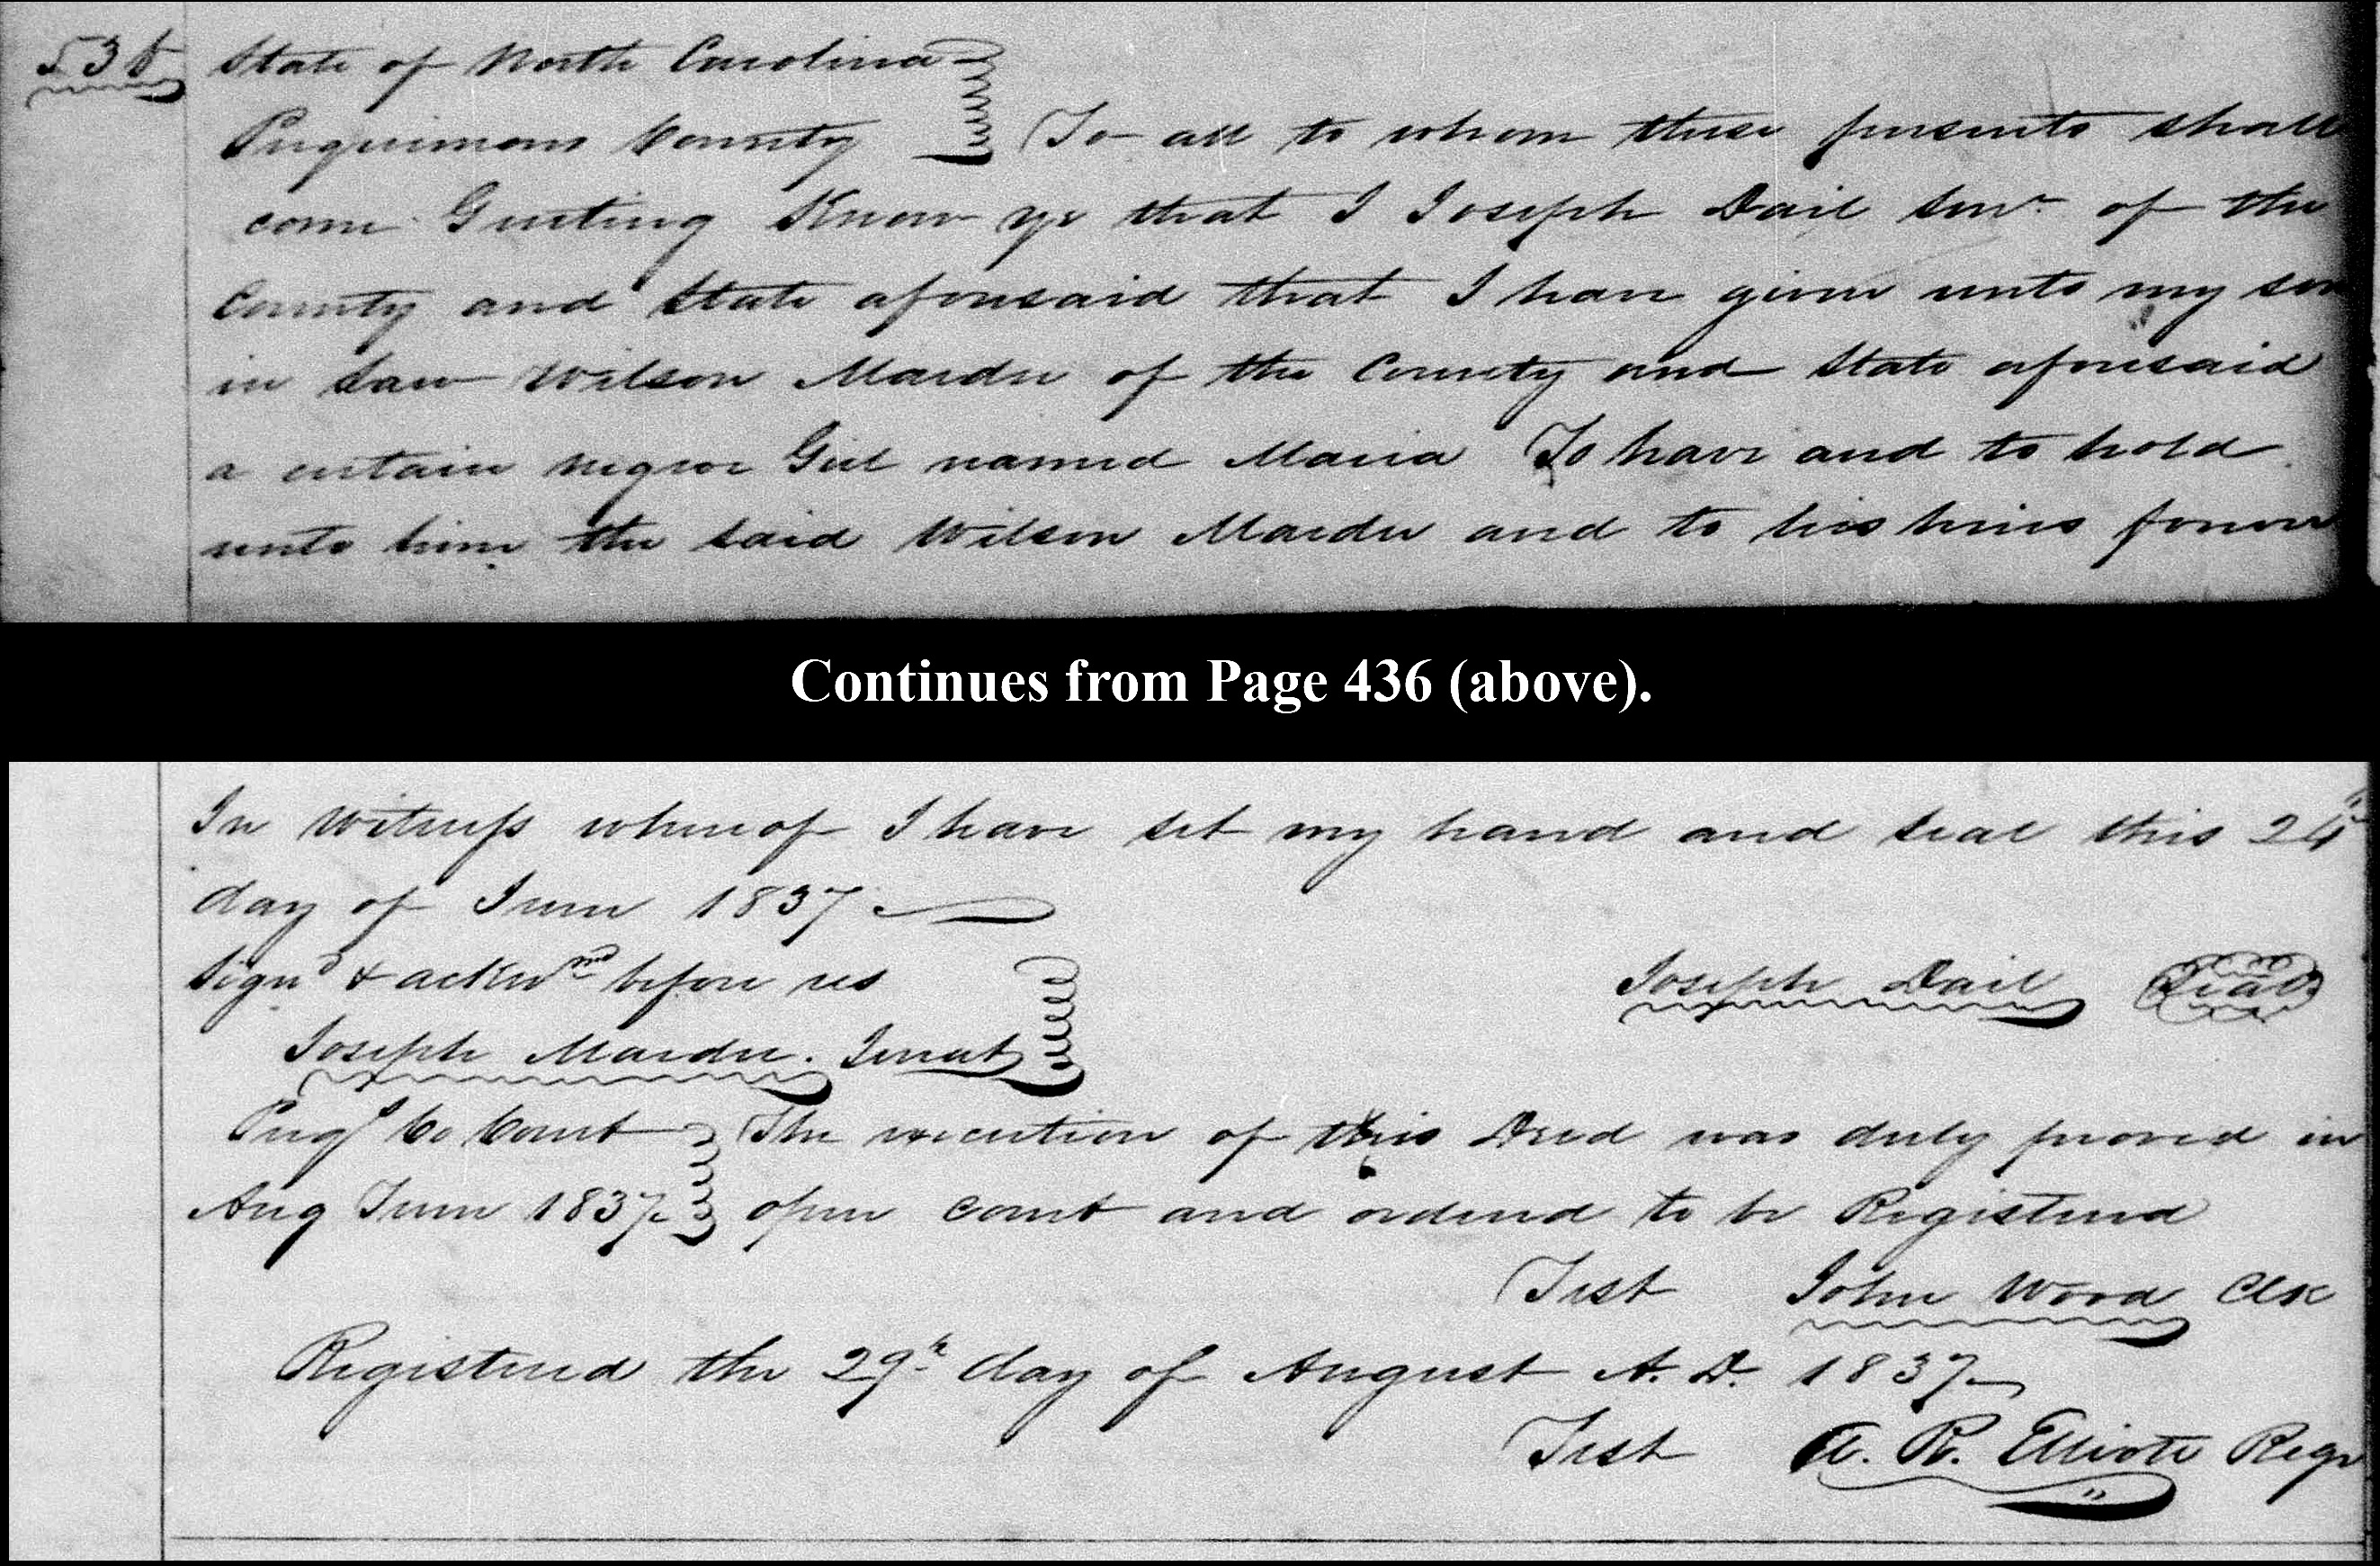 536 State of North Carolina
Perquimons County To all to whom these presents shall
come Greeting Know ye that I Joseph Dail Senr. of the
County and State aforesaid that I have given unto my son
in Law Wilson Mardre of the County and State aforesaid
a certain negroe Girl named Maria To have and to hold
unto him the said Wilson Mardre and to his heirs forever
Continues from Page 436 (above).
In Witness whereof I have set my hand and seal this 24th
day of June 1837
Signd & acknd before us
Joseph Dail Seal
Joseph Mardre. Jurat
Perqs Co Court The execution of this Deed was duly proved in
Aug Term 1837 open court and ordered to be Registered
Test John Wood Clk
Registered the 29th day of August A. D. 1837
Test A. R. Elliott Regr